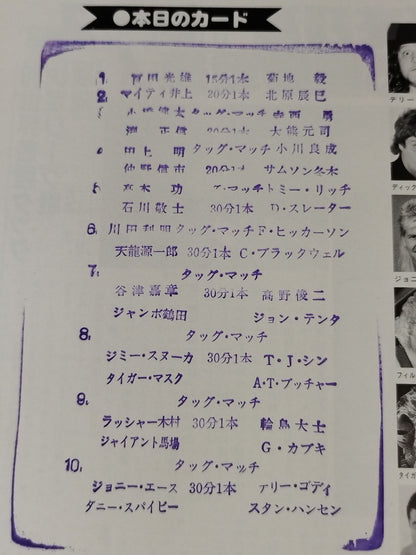 ●本日のカード
1. 百田光雄 15分1本 菊地 毅
2. マイティ井上 20分1本 北原辰巳
3 小橋健太 タッグ・マッチ 寺西 勇
渕 正信 20分1本 大熊元司
4 田上 明 タッグ・マッチ 小川良成
仲野信市 20分1本 サムソン冬木
5 高木 功 タッグ・マッチ トミー・リッチ
石川敬士 30分1本 D・スレーター
6. 川田利明 タッグ・マッチ F・ヒッカーソン
天龍源一郎 30分1本 C・ブラックウェル
7. タッグ・マッチ
谷津嘉章 30分1本 高野俊二
ジャンボ鶴田 ジョン・テンタ
8. タッグ・マッチ
ジミー・スヌーカ 30分1本 T・J・シン
タイガー・マスク A・T・ブッチャー
9. タッグ・マッチ
ラッシャー木村 30分1本 輪島大士
ジャイアント馬場 G・カブキ
10. タッグ・マッチ
ジョニー・エース 30分1本 テリー・ゴディ
ダニー・スパイビー スタン・ハンセン
テリー
ディック
ジョニ
フィル
タイガ